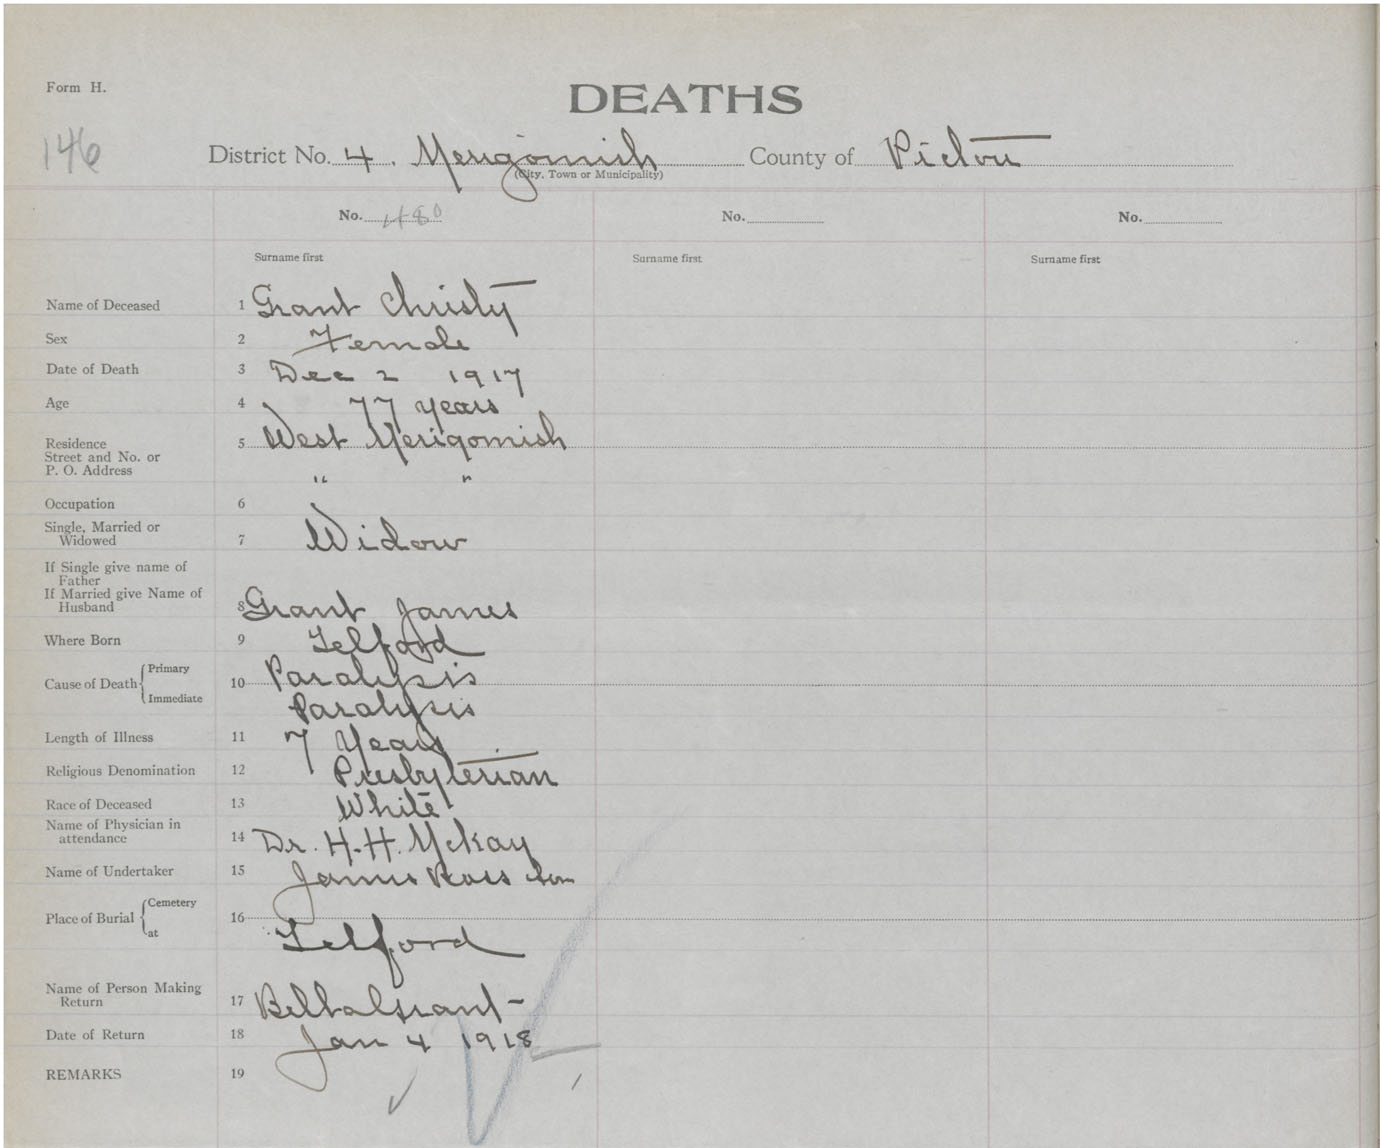 Form H.
DEATHS
146
District No. 4. Merigomish County of Pictou
(City, Town or Municipality)
No. 480 No. No.
Surname first Surname first Surname first
Name of Deceased 1 Grant Christy
Sex 2 Female
Date of Death 3 Dec 2 1917
Age 4 77 years
Residence 5 West Merigomish
Street and No. or
P. O. Address " "
Occupation 6
Single, Married or
Widowed 7 Widow
If Single give name of
Father
If Married give Name of
Husband 8 Grant James
Where Born 9 Telford
Cause of Death Primary 10 Paralysis
Immediate Paralysis
Length of Illness 11 7 Years
Religious Denomination 12 Presbyterian
Race of Deceased 13 White
Name of Physician in
attendance 14 Dr. H. H. McKay
Name of Undertaker 15 James Ross
Place of Burial Cemetery 16
at Telford
Name of Person Making
Return 17 Grant
Date of Return 18 Jan 4 1918
REMARKS 19